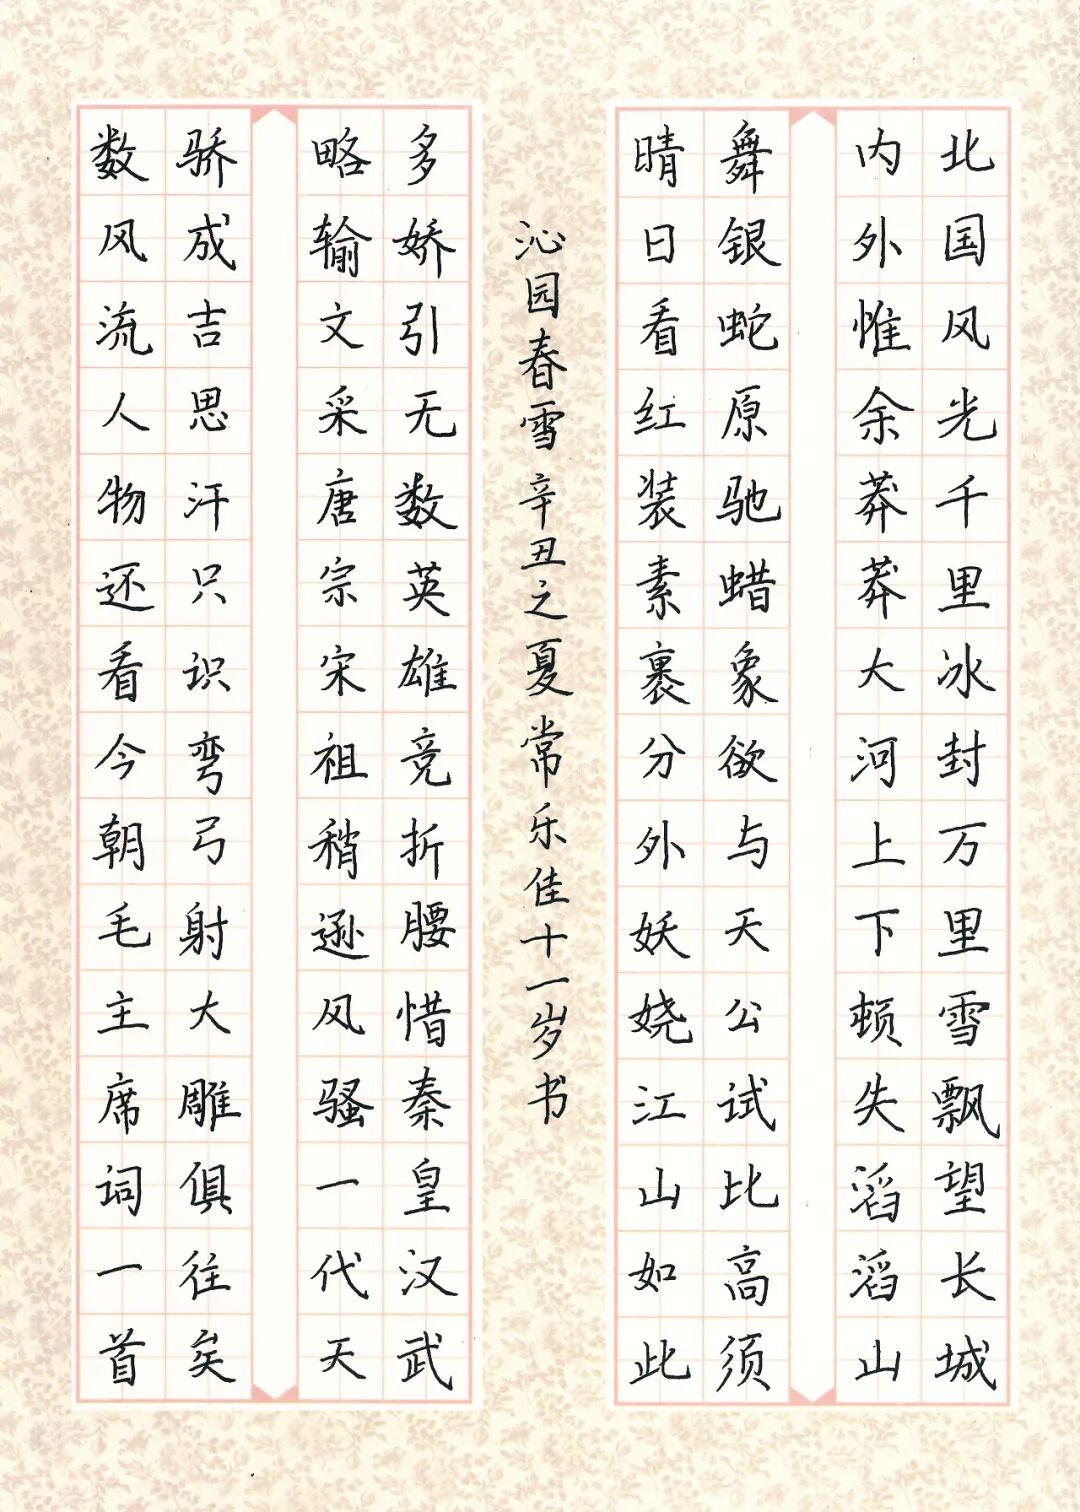 北国风光千里冰封万里雪飘望长城
内外惟余莽莽大河上下顿失滔滔山
舞银蛇原驰蜡象欲与天公试比高须
晴日看红装素裹分外妖娆江山如此
多娇引无数英雄竞折腰惜秦皇汉武
略输文采唐宗宋祖稍逊风骚一代天
骄成吉思汗只识弯弓射大雕俱往矣
数风流人物还看今朝毛主席词一首
沁园春雪辛丑之夏常乐佳十一岁书